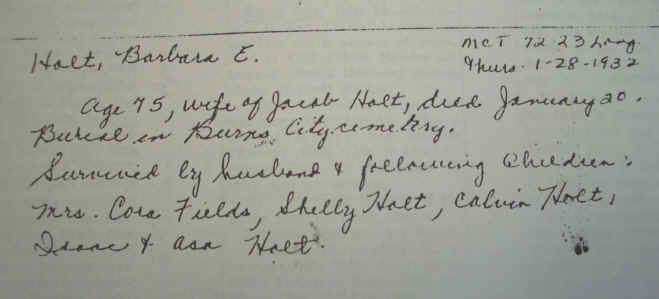 Holt, Barbara E.
MCT 72 23 Long
Thurs. 1-28-1932
Age 75, wife of Jacob Holt, died January 20.
Burial in Burns City cemetery.
Survived by husband & following children:
Mrs. Cora Fields, Shelly Holt, Calvin Holt,
Isaac & Asa Holt.